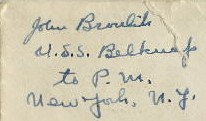 John
U.S.S. Belknap
to P.M.
New York, N.Y.